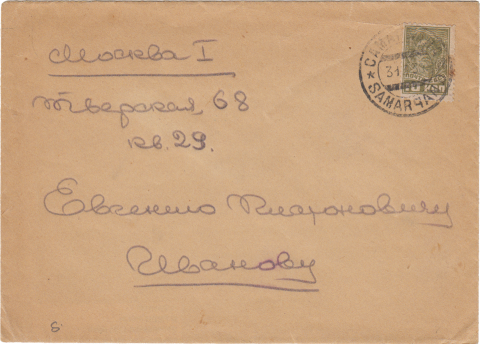 Москва I
Тверская 68
кв. 29.
Евгению Платоновичу
Иванову
САМАР
31
SAMARҚA
6